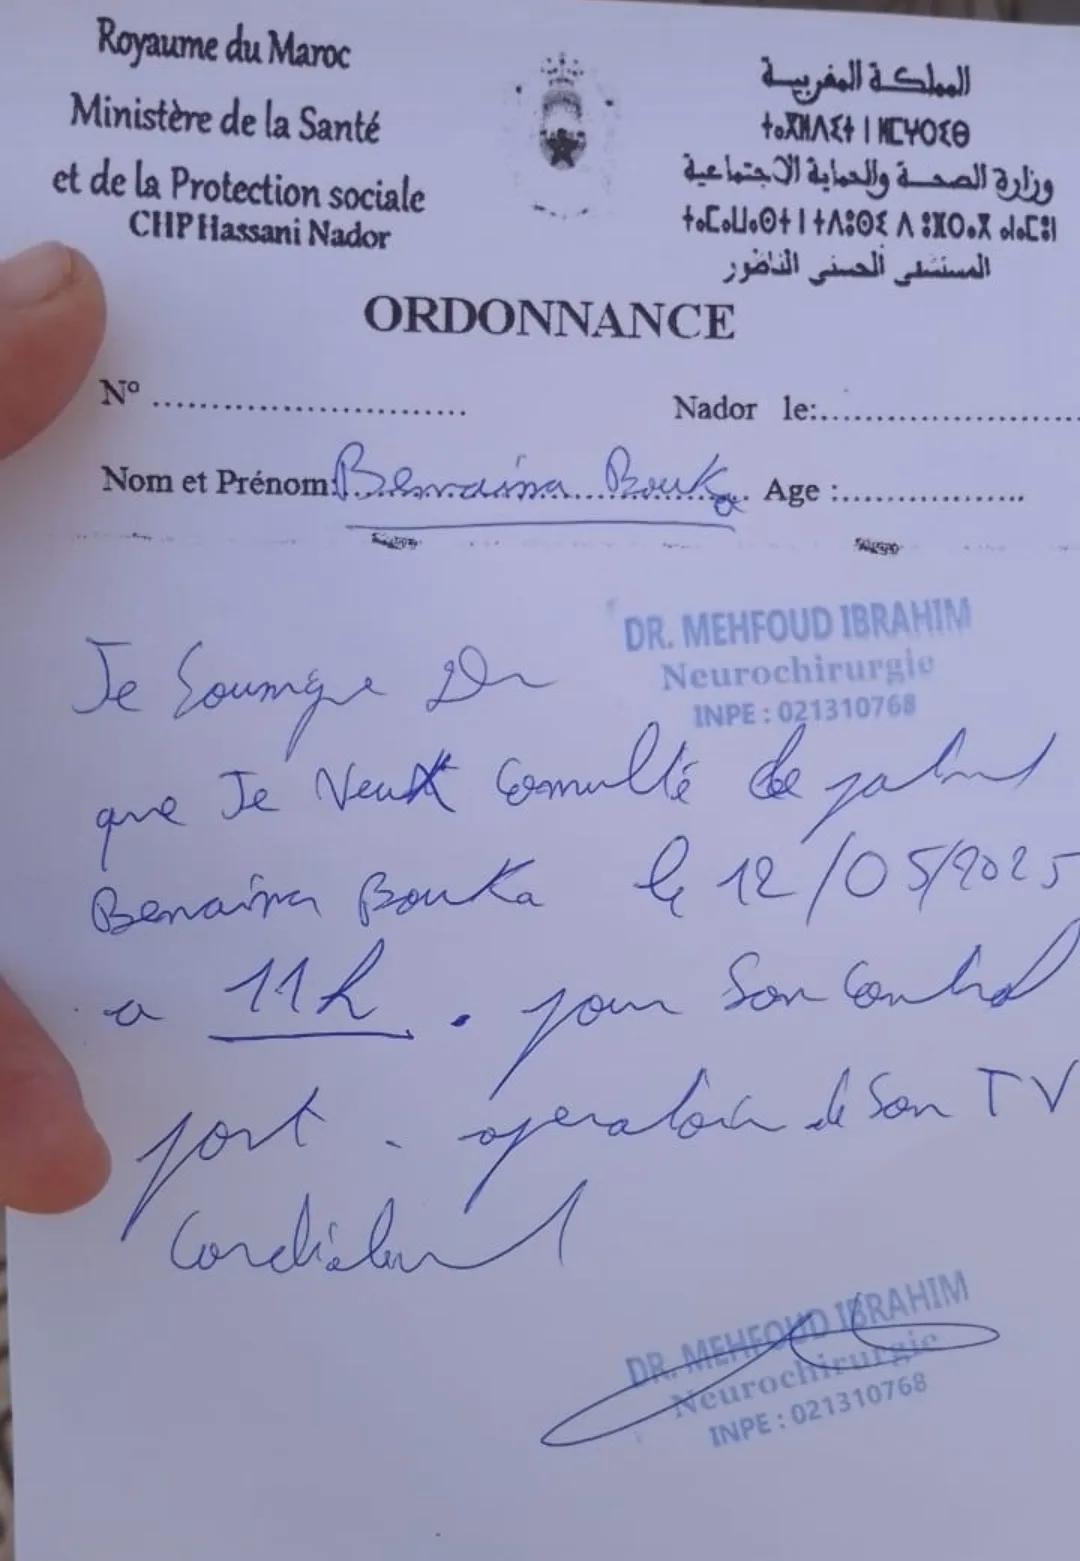 Royaume du Maroc
Ministère de la Santé
et de la Protection sociale
CHP Hassani Nador
المملكة المغربية
ⵜⴰⴳⵍⴷⵉⵜ ⵏ ⵍⵎⵖⵔⵉⴱ
وزارة الصحة والحماية الاجتماعية
ⵜⴰⵎⴰⵡⴰⵙⵜ ⵏ ⵜⴷⵓⵙⵉ ⴷ ⵓⴼⵔⴰⴳ ⴰⵏⴰⵎⵓⵏ
المستشفى الحسني الناضور
ORDONNANCE
N° ...........................
Nador le:.......................
Nom et Prénom: Benaissa Bouka Age :................
DR. MEHFOUD IBRAHIM
Neurochirurgie
INPE : 021310768
Je Soumigne Dr
que Je Veux Consulté le patient
Benaissa Bouka le 12/05/2025
a 11h . pour Son Control
post - operatoire de Son TV
Cordialement
DR. MEHFOUD IBRAHIM
Neurochirurgie
INPE : 021310768